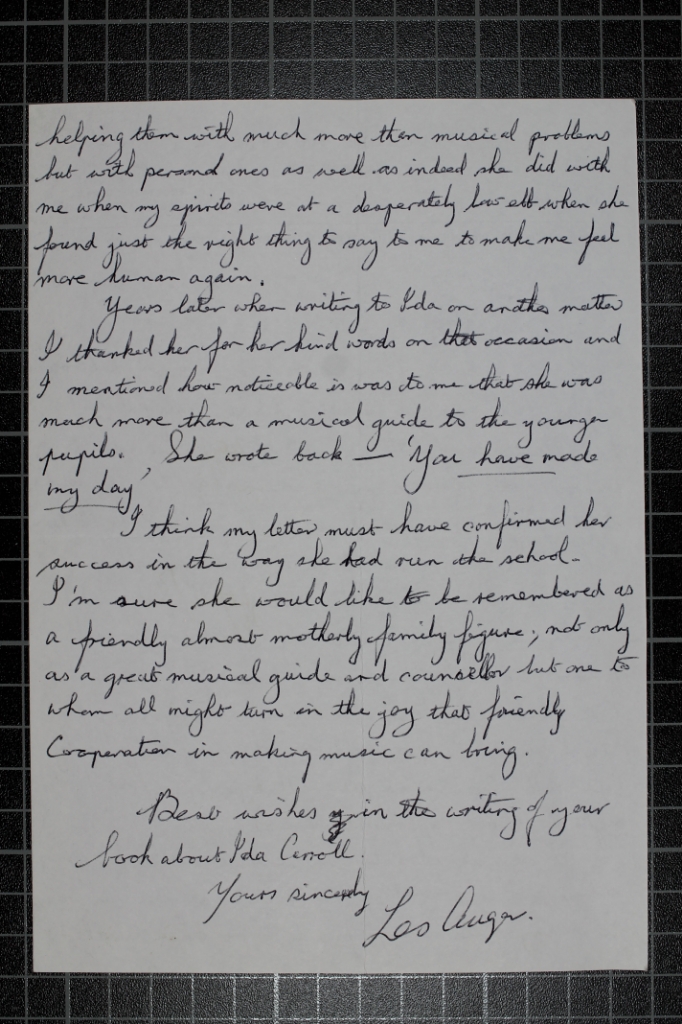 helping them with much more than musical problems
but with personal ones as well as indeed she did with
me when my spirits were at a desperately low ebb when she
found just the right thing to say to me to make me feel
more human again.
Years later when writing to Ida on another matter
I thanked her for her kind words on that occasion and
I mentioned how noticeable is was to me that she was
much more than a musical guide to the younger
pupils. She wrote back — 'You have made
my day'
I think my letter must have confirmed her
success in the way she had run the school.
I'm sure she would like to be remembered as
a friendly almost motherly family figure; not only
as a great musical guide and counsellor but one to
whom all might turn in the joy that friendly
Cooperation in making music can bring.
Best wishes in the writing of your
book about Ida Carroll.
Yours sincerely
Les Auger.